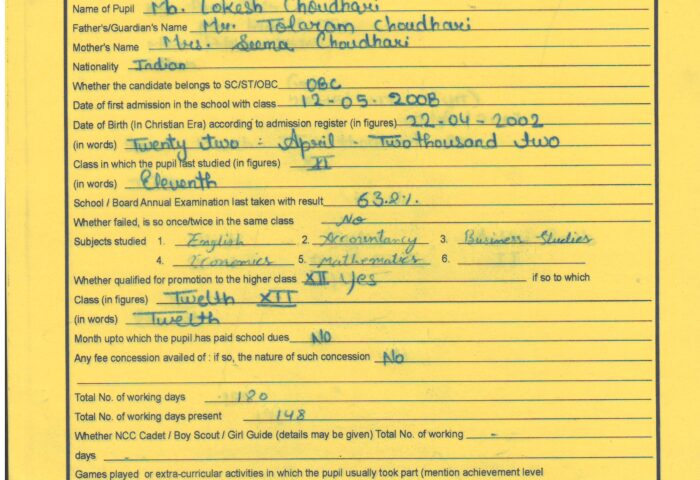 Name of Pupil Mr. Lokesh Choudhari
Father's/Guardian's Name Mr. Tolaram Choudhari
Mother's Name Mrs. Seema Choudhari
Nationality Indian
Whether the candidate belongs to SC/ST/OBC OBC
Date of first admission in the school with class 12-05-2008
Date of Birth (In Christian Era) according to admission register (in figures) 22-04-2002
(in words) Twenty two : April - Two thousand two
Class in which the pupil last studied (in figures) XI
(in words) Eleventh
School / Board Annual Examination last taken with result 63.8%.
Whether failed, is so once/twice in the same class No
Subjects studied 1. English 2. Accountancy 3. Business Studies
4. Economics 5. Mathematics 6.
Whether qualified for promotion to the higher class XII Yes if so to which
Class (in figures) Twelth XII
(in words) Twelth
Month upto which the pupil has paid school dues No
Any fee concession availed of : if so, the nature of such concession No
Total No. of working days 180
Total No. of working days present 148
Whether NCC Cadet / Boy Scout / Girl Guide (details may be given) Total No. of working -
days -
Games played or extra-curricular activities in which the pupil usually took part (mention achievement level